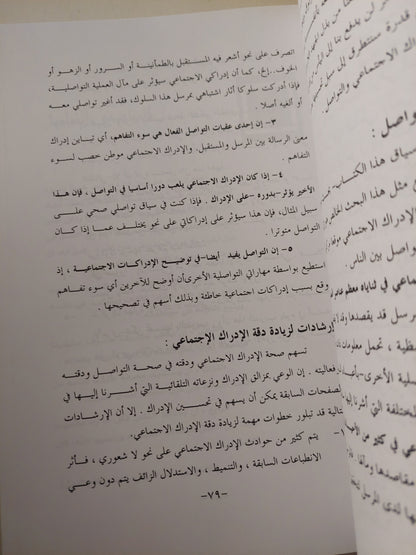 اتصرف على نحو أشعر فيه المستقبل بالطمأنينة أو السرور أو الزهو أو
الخوف..إلخ، كما أن إدراكي الاجتماعي سيؤثر على مآل العملية التواصلية،
فإذا أدركت سلوكا أثار اشتباهي بمرسل هذا السلوك، فقد أغير تواصلي معه
أو ألغيه أصلا .
٣- إن إحدى عقبات التواصل الفعال هي سوء التفاهم، أي تباين إدراك
معنى الرسالة بين المرسل والمستقبل. والإدراك الاجتماعي موطن خصب لسوء
التفاهم .
٤- إذا كان الإدراك الاجتماعي يلعب دورا أساسيا في التواصل ، فإن هذا
الأخير يؤثر-بدوره -على الإدراك. فإذا كنت في سياق تواصلي صحي على
سبيل المثال، فإن هذا سيؤثر على إدراكاتي على نحو يختلف عما إذا كان
التواصل متوترا .
٥- إن التواصل يفيد أيضا-في توضيح الإدراكات الاجتماعية ، إذ
استطيع بواسطة مهاراتي التواصلية الأخرى أن أوضح للآخرين أي سوء تفاهم
وقع بسبب إدراكات اجتماعية خاطئة وبذلك أسهم في تصحيحها .
إرشادات لزيادة دقة الإدراك الاجتماعي :
تسهم صحة الإدراك الاجتماعي ودقته في صحة التواصل ودقته
وفعاليته . إن الوعي بمزالق الإدراك ونزعاته التلقائية التي أشرنا إليها في
الصفحات السابقة يمكن أن يسهم في تحسين الإدراك . إلا أن الإرشادات
التالية قد تبلور خطوات مهمة لزيادة دقة الإدراك الاجتماعي.
١- يتم كثير من حوادث الإدراك الاجتماعي على نحو لا شعوري ، فأثر
الانطباعات السابقة ، والتنميط ، والاستدلال الزائف يتم دون وعي
-٧٩-
تواصل :
سياق هذا الكتاب
مثل هذا البحث
الإدراك الاجتماعي
بين الناس .